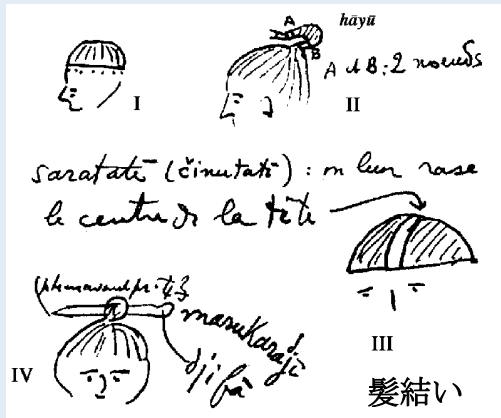 hāyū
A
B
A et B : 2 noeuds
I
II
saratatē (činutatī) : on leur rase
le centre de la tête
III
marukaradji
djifā
IV
髪結い